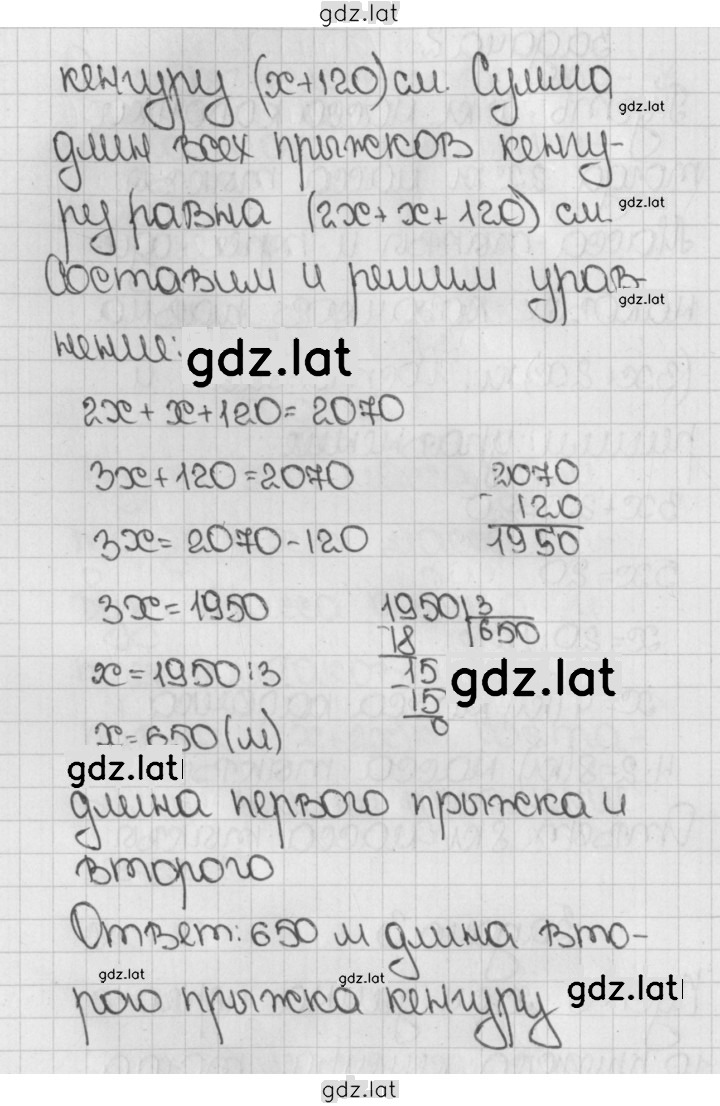 gdz.lat
кенгуру (x+120) см. Сумма
gdz.lat
длин всех прыжков кенгу-
ру равна (2x+x+120) см.
gdz.lat
Составим и решим урав-
gdz.lat
нение:
gdz.lat
2x+x+120=2070
3x+120=2070
3x=2070-120
2070
- 120
1950
3x=1950
x=1950:3
1950|3
18 |650
15
15
0
gdz.lat
x=650(м)
gdz.lat
длина первого прыжка и
второго
Ответ: 650 м длина вто-
gdz.lat
gdz.lat
рого прыжка кенгуру
gdz.lat
gdz.lat